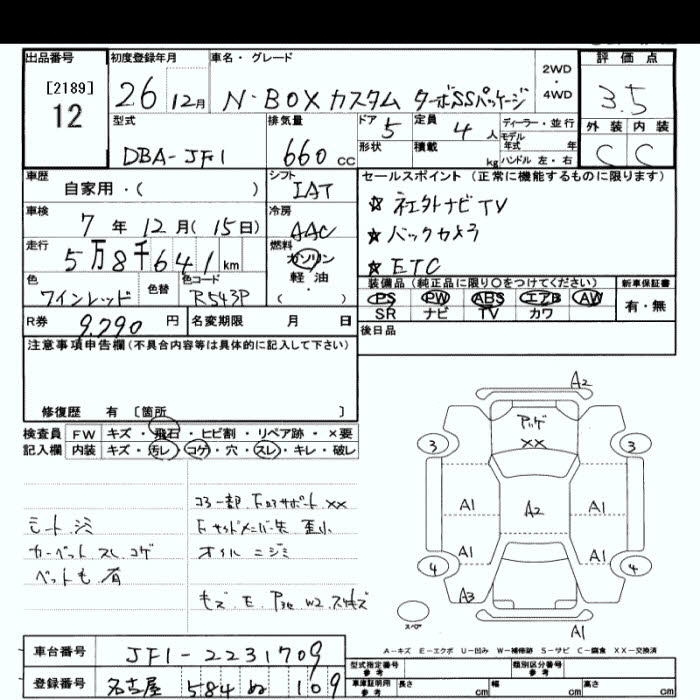 出品番号 初度登録年月 車名・グレード 2WD・4WD 評価点
[2189]
12
26 12月 N-BOXカスタム ターボSSパッケージ 3.5
型式 排気量 ドア 5 定員 4人 ディーラー・並行 外装 内装
モデル年式 年
DBA-JF1 660cc 形状 積載 kg ハンドル 左・右 C C
車歴 シフト セールスポイント(正常に機能するものに限ります)
自家用・( ) IAT ☆ 社外ナビTV
車検 7年12月(15日) 冷房 AAC ☆ バックカメラ
走行 5万8千641km 燃料 ガソリン 軽油 ( ) ☆ ETC
色 ワインレッド 色替 色コード R543P
装備品(純正品に限り○をつけてください) 新車保証書
PS PW ABS エアB AW 有・無
SR ナビ TV カワ
R券 9,290円 名変期限 月 日 後日品
注意事項申告欄(不具合内容等は具体的に記入して下さい)
修復歴 有 [箇所 ]
検査員 FW キズ・飛石・ヒビ割・リペア跡・×要
記入欄 内装 キズ・汚レ・コゲ・穴・スレ・キレ・破レ
シート シミ
カーペット スレ コゲ
ペットも 有
コアー部 F ロアサポート ××
オイル ニジミ
A2
××
3 3
A1 A2 A1
A1 A1
4 4
A3
スペア
A1
A-キズ E-エクボ U-凹み W-補修跡 S-サビ C-腐食 XX-交換済
車台番号 JF1-2231709
登録番号 名古屋 584 ぬ 109
型式指定番号 参考 類別区分番号 参考
車庫証明用 参考 長さ cm 幅 cm 高さ cm